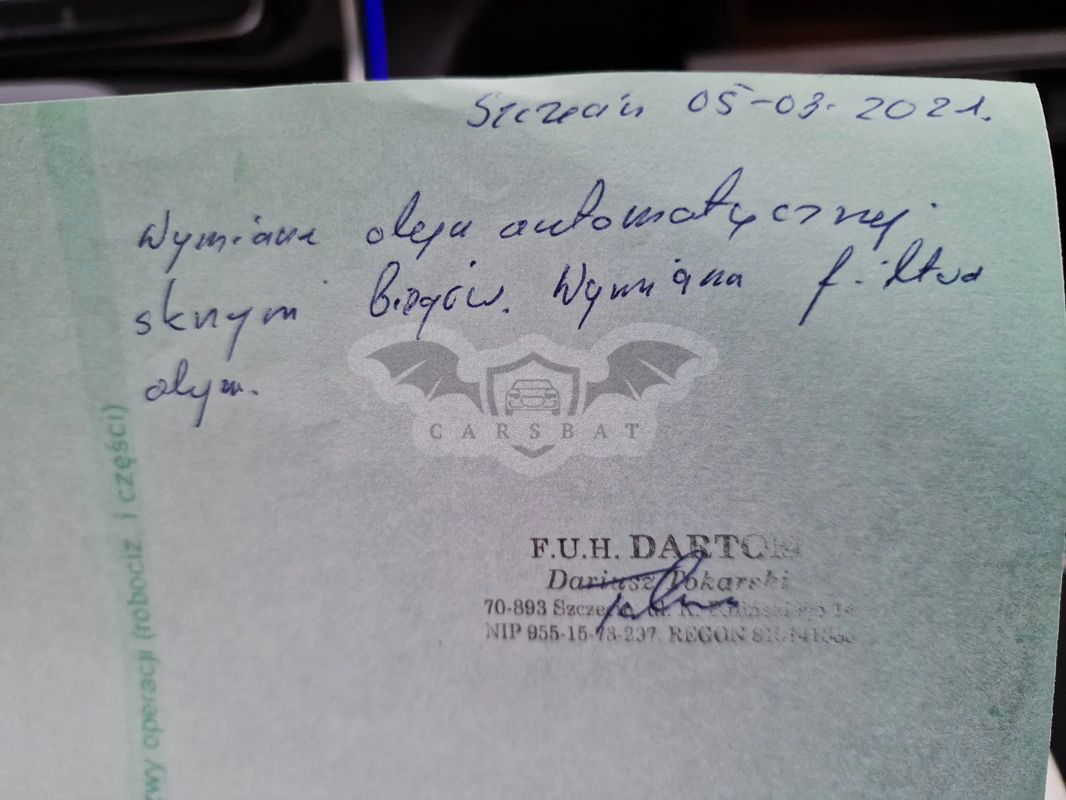 Szczecin 05-03-2021.
Wymiana oleju automatycznej
skrzyni biegów. Wymiana filtra
oleju.
CARSBAT
F.U.H. DARTO
Dariusz Tokarski
70-893 Szczecin, ul. K.
NIP 955-15-73-237. REGON
zwy operacji (robociz i części)